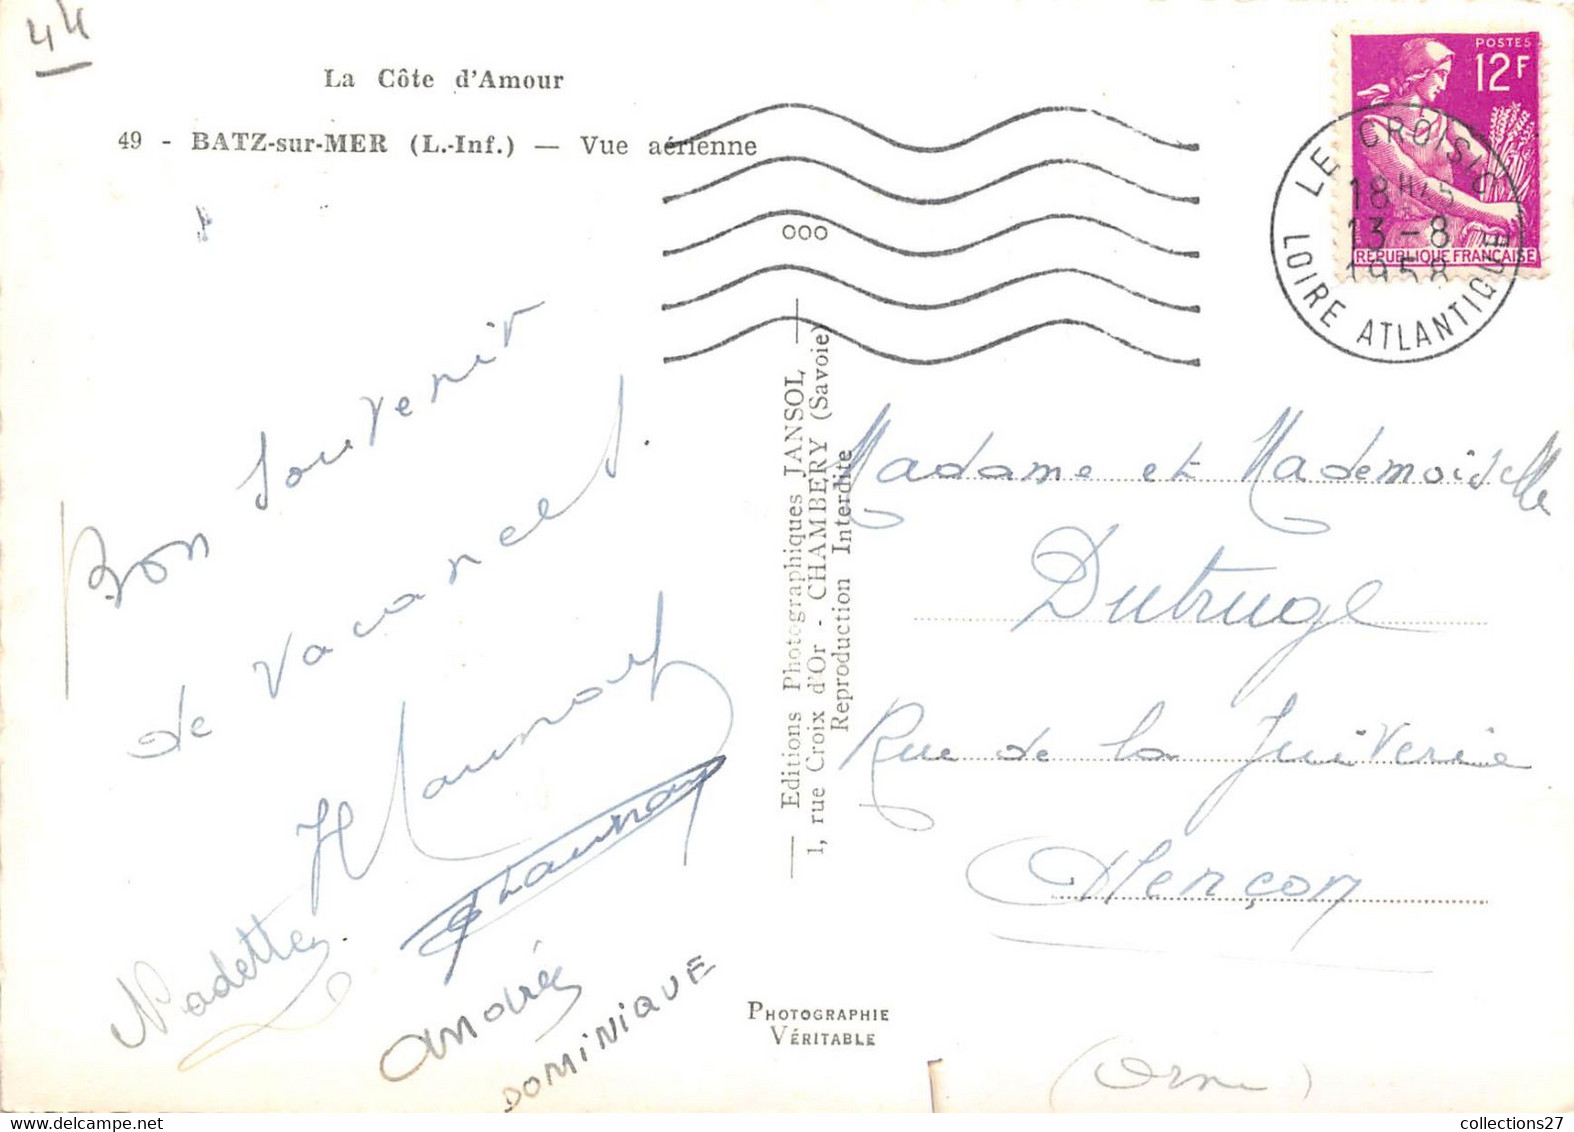 44
La Côte d'Amour
49 - BATZ-sur-MER (L.-Inf.) — Vue aérienne
POSTES
12F
REPUBLIQUE FRANÇAISE
LE CROISIC
18H45
13-8
1958
LOIRE ATLANTIQUE
000
Bon souvenir
de vacances.
Nadette
André
DOMINIQUE
— Editions Photographiques JANSOL —
1, rue Croix d'Or - CHAMBERY (Savoie)
Reproduction Interdite
Madame et Mademoiselle
Dutruge
Rue de la Juiverie
Alençon
(Orne)
PHOTOGRAPHIE
VÉRITABLE
collections27